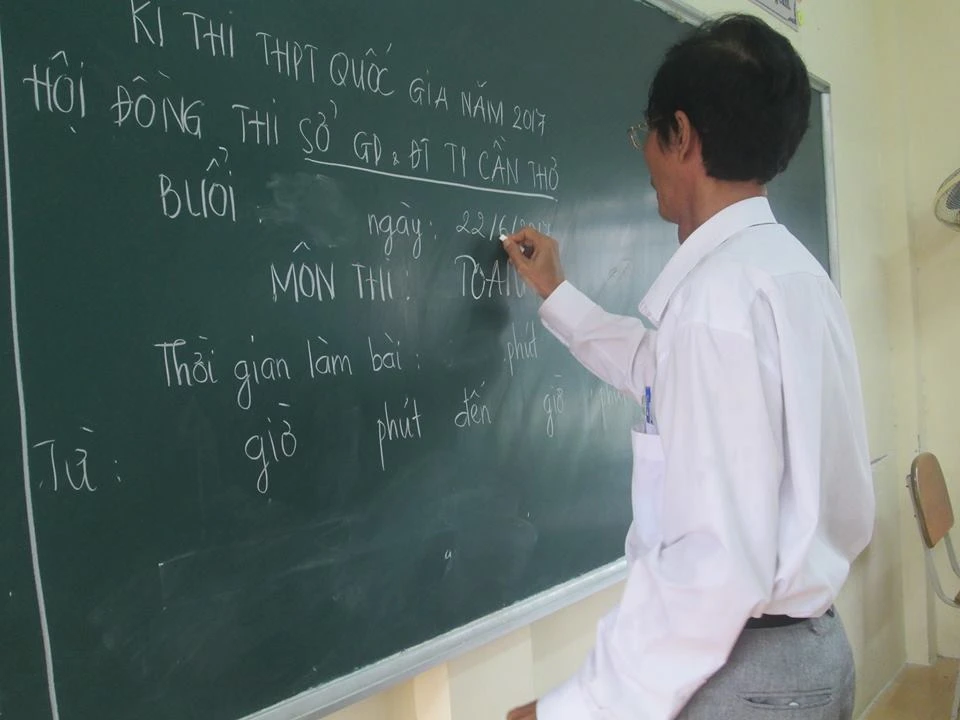 KÌ THI THPT QUỐC GIA NĂM 2017
HỘI ĐỒNG THI SỞ GD & ĐT TP CẦN THƠ
BUỔI : ngày : 22/6/2017
MÔN THI : TOÁN
Thời gian làm bài : phút
Từ : giờ phút đến giờ phút